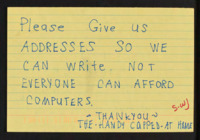 Please Give us
ADDRESSES SO WE
CAN WRite. NOT
EVERYONE CAN AFFORD
COMPUTERS.
S.W.J
~THANKYOU~
THE-HANDY CAPPED-AT HOME